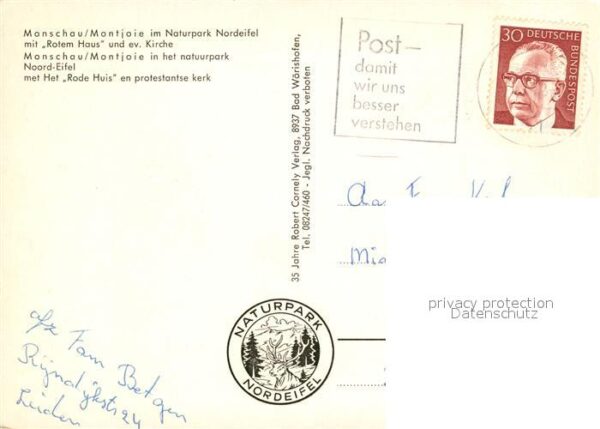 Monschau/Montjoie im Naturpark Nordeifel
mit „Rotem Haus" und ev. Kirche
Monschau/Montjoie in het natuurpark
Noord-Eifel
met Het „Rode Huis" en protestantse kerk
35 Jahre Robert Cornely Verlag, 8937 Bad Wörishofen,
Tel. 08247/460 - Jegl. Nachdruck verboten
Post—
damit
wir uns
besser
verstehen
30 DEUTSCHE
BUNDESPOST
Aan Fam
privacy protection
Datenschutz
NATURPARK
NORDEIFEL
afz Fam
Leiden